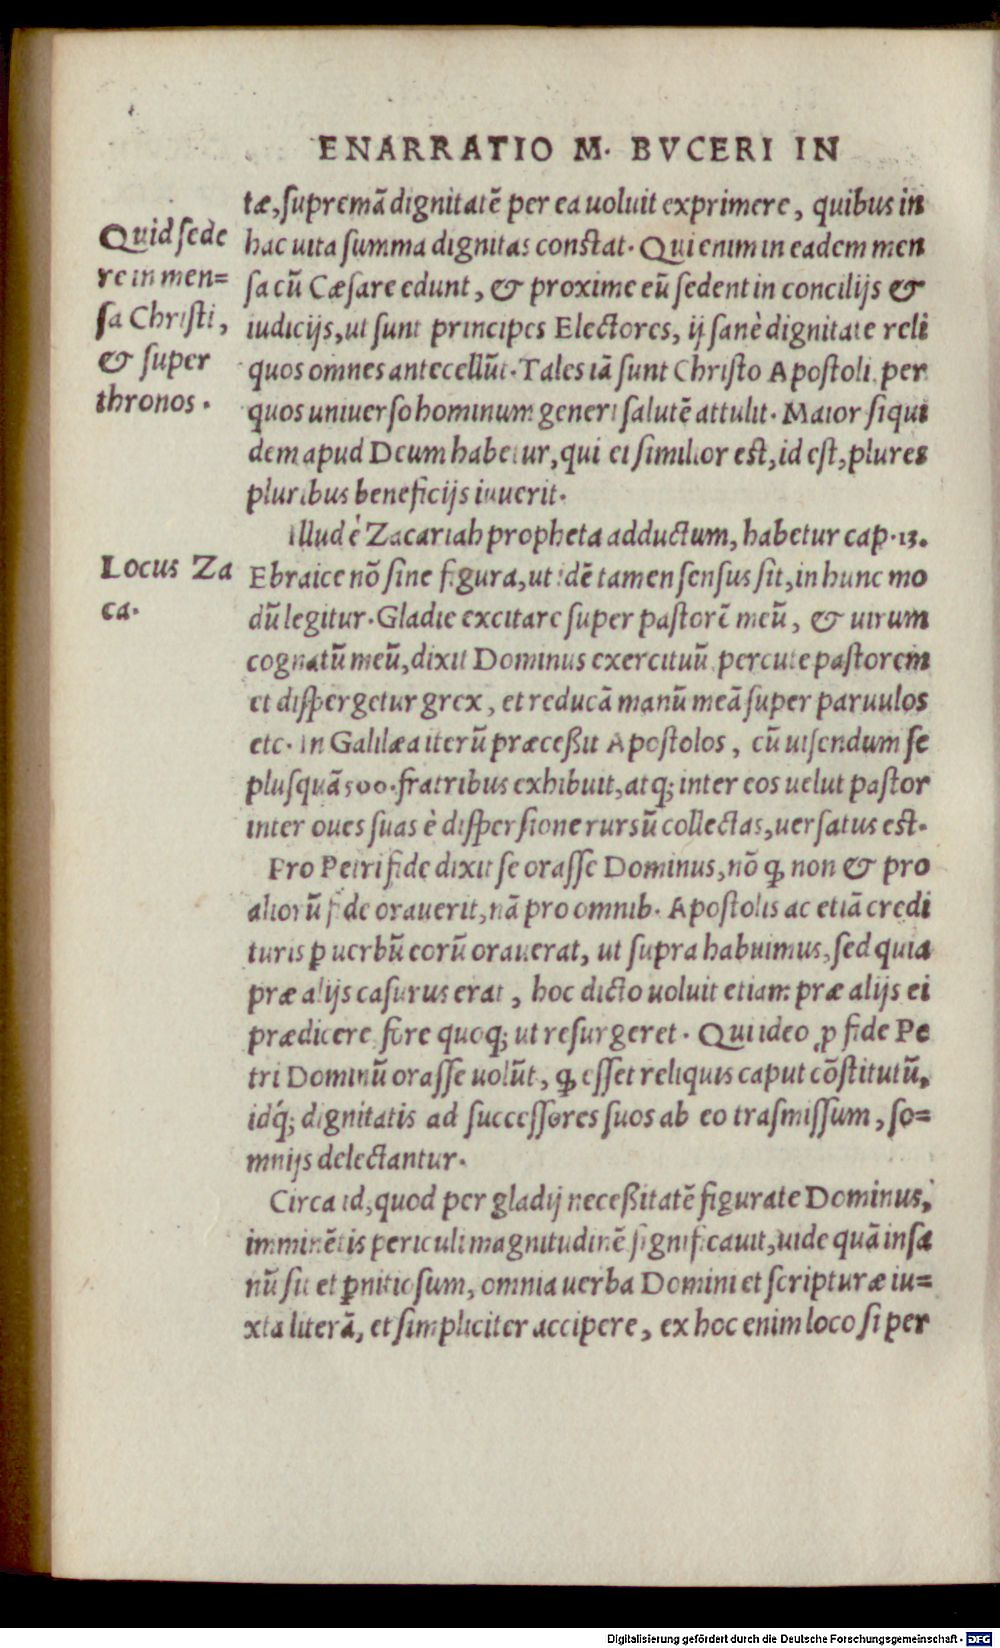 ENARRATIO M. BVCERI IN
tæ, supremā dignitatē per ea uoluit exprimere, quibus in
Quid sede
re in men=
sa Christi,
& super
thronos.
hac uita summa dignitas constat. Qui enim in eadem men
sa cū Cæsare edunt, & proxime eū sedent in concilijs &
iudicijs, ut sunt principes Electores, ij sanè dignitate reli
quos omnes antecellūt. Tales iā sunt Christo Apostoli per
quos uniuerso hominum generi salutē attulit. Maior siqui
dem apud Deum habetur, qui ei similior est, id est, plures
pluribus beneficijs iuuerit.
Illud è Zacariah propheta adductum, habetur cap. 13.
Locus Za
ca.
Ebraice nō sine figura, ut idē tamen sensus sit, in hunc mo
dū legitur. Gladie excitare super pastorē meū, & uirum
cognatū meū, dixit Dominus exercituū percute pastorem
et dispergetur grex, et reducā manū meā super paruulos
etc. In Galilæa iterū præceßit Apostolos, cū uisendum se
plusquā 500. fratribus exhibuit, atq; inter eos uelut pastor
inter oues suas è dispersione rursū collectas, uersatus est.
Pro Petri fide dixit se orasse Dominus, nō ꝙ non & pro
aliorū fide orauerit, nā pro omnib. Apostolis ac etiā credi
turis ꝑ uerbū eorū orauerat, ut supra habuimus, sed quia
præ alijs casurus erat, hoc dicto uoluit etiam præ alijs ei
prædicere fore quoq; ut resurgeret. Qui ideo ꝓ fide Pe
tri Dominū orasse uolūt, ꝙ esset reliquis caput cōstitutū,
idq́; dignitatis ad successores suos ab eo trasmissum, so=
mnijs delectantur.
Circa id, quod per gladij neceßitatē figurate Dominus,
imminētis periculi magnitudinē significauit, uide quā insa
nū sit et ꝑnitiosum, omnia uerba Domini et scripturæ iu=
xta literā, et simpliciter accipere, ex hoc enim loco si per
Digitalisierung gefördert durch die Deutsche Forschungsgemeinschaft - DFG